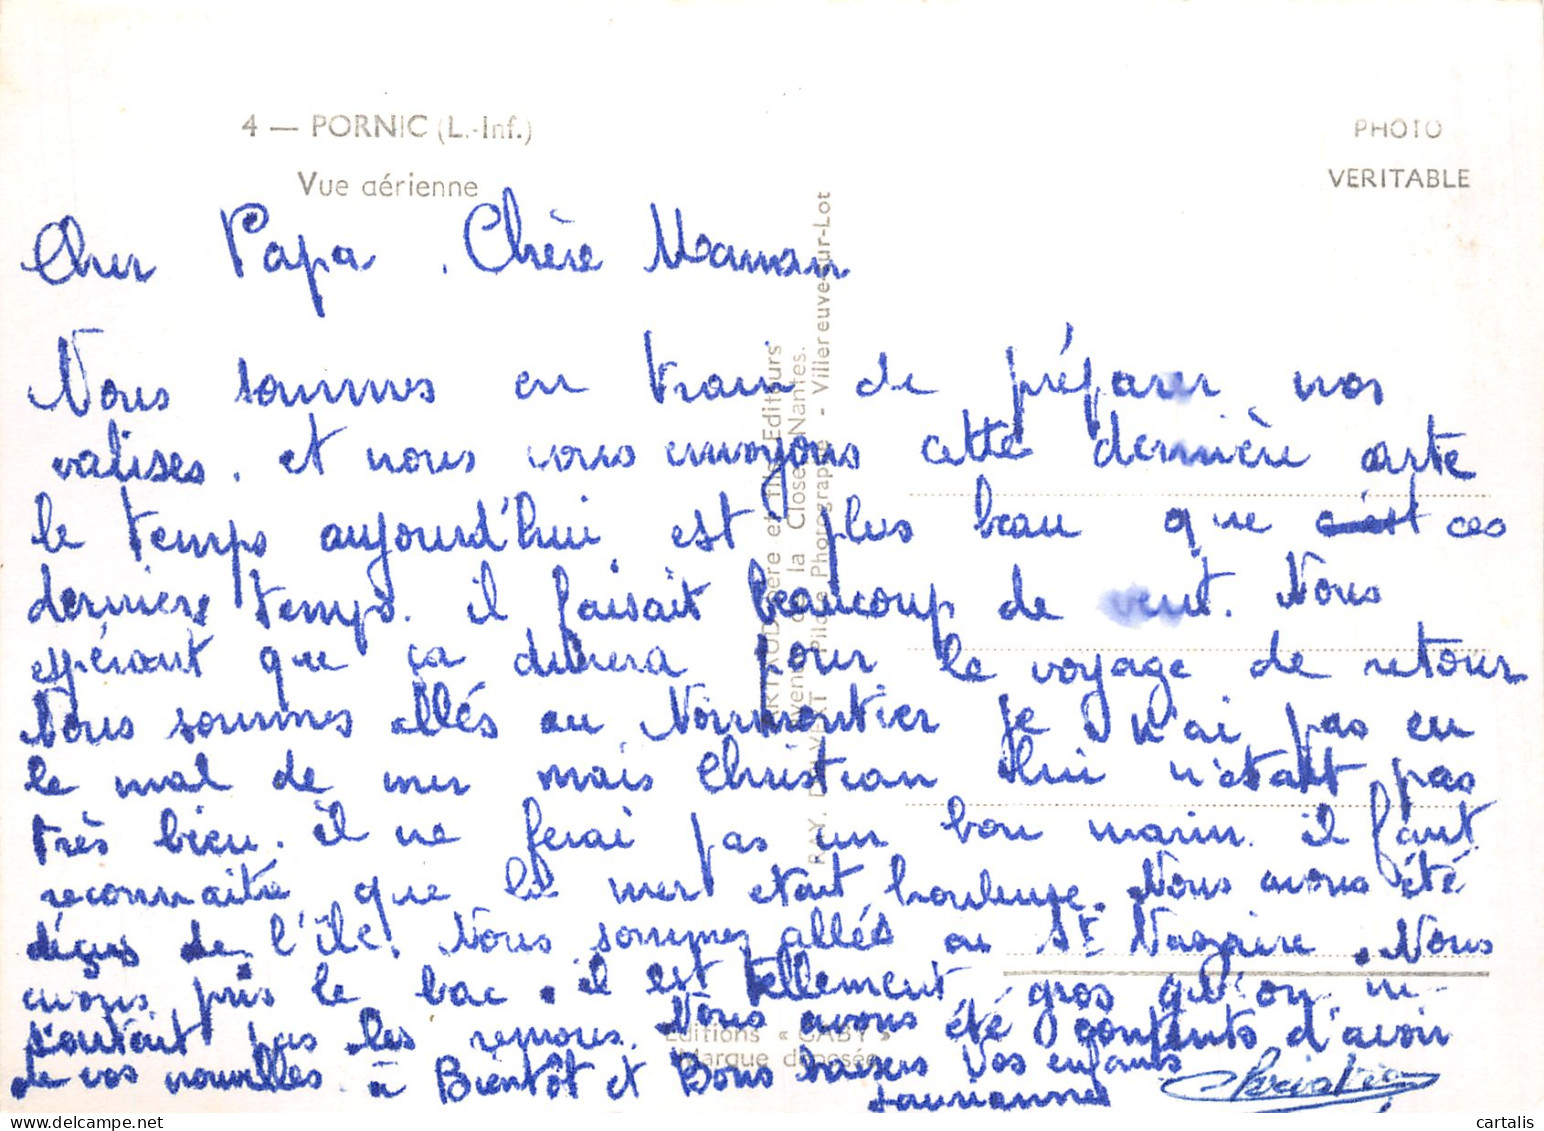 4 — PORNIC (L.-Inf.)
Vue aérienne
PHOTO
VERITABLE
Cher Papa. Chère Maman
Nous sommes en train de préparer nos
valises. et nous vous envoyons cette dernière carte
le temps aujourd'hui est plus beau que c'est ces
derniers temps. il faisait beaucoup de vent. Nous
espérant que ça durera pour le voyage de retour
Nous sommes allés au Noirmontier je n'ai pas eu
le mal de mer mais Christian lui n'était pas
très bien. il ne ferai pas un bon marin. il faut
reconnaitre que la mer etait houleuse. Nous avons été
déçus de l'île. Nous sommes allés a St Nazaire. Nous
avons pris le bac. il est tellement gros qu'on ne
sentait pas les remous. Nous avons été contents d'avoir
de vos nouvelles. à Bientôt et Bons baisers Vos enfants
Christian
ARTAUD Père et Fils Editeurs
Avenue de la Close - Nantes.
RAY. DELVERT Pilote Photographe - Villeneuve-sur-Lot
Editions « GABY »
Marque déposée
cartalis